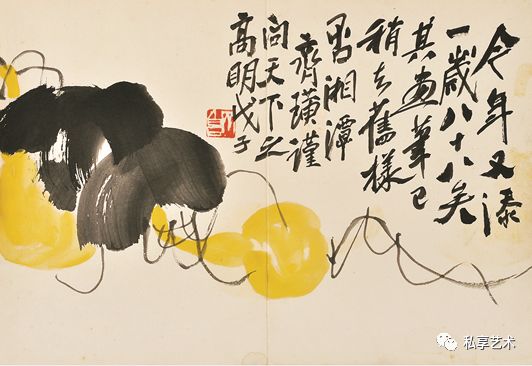 今年又添
一歲八十八矣
其畫筆已
稍去舊樣
否湘潭
齊璜謹
問天下之
高明戊子
私享艺术